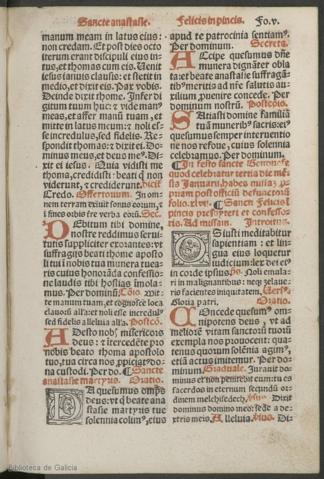 Sancte anastasie. Felicis in pincis. Fo.v.
manum meam in latus eius:
non credam. Et post dies octo
iterum erant discipuli eius in-
tus, et thomas cum eis. Uenit
iesus ianuis clausis: et stetit in
medio, et dixit eis. Pax vobis.
Deinde dixit thome. Infer di
gitum tuum huc: ⁊ vide man⁹
meas, et affer manū tuam, et
mitte in latus meum: ⁊ noli es-
se incredulus, sed fidelis. Re-
spondit thomas: ⁊ dixit ei. Do-
minus meus, et deus me⁹. Di-
xit ei iesus. Quia vidisti me
thoma, credidisti: beati q̄ non
viderunt, ⁊ crediderunt. Dicit̄
Credo. Offertorium. In om-
nem terram exiuit sonus eorum, ⁊
ī fines orbis tre verba eoꝝ. Sec.
DEbitum tibi domine,
nostre reddimus serui-
tutis suppliciter exorantes: vt
suffragijs beati thome aposto
li tui ī nobis tua munera tuea-
ris cuius honorāda confessio-
ne laudis tibi hostias īmola-
mus. Per dominū. Cōio. Mit-
te manum tuam, et cognosce loca
clauorū alľa: et noli esse incredul⁹
sed fidelis alleluia alľa. Postcō.
ADesto nob̄ misericors
deus: ⁊ intercedēte pro
nobis beato thoma apostolo
tuo, tua circa nos ꝓpiciat⁹ do-
na custodi. Per do. Sancte
anastasie martyris. Oratio.
DA quesumus omp̄s
deus: vt q̄ beate ana
stasie martyris tue
solennia colim⁹, eius
apud te patrocinia sentiam⁹.
Per dominum. Secreta.
ACcipe quesumus dn̄e
munera dignāter obla
ta: et beate anastasie suffragā-
tib⁹ meritis ad nr̄e salutis au-
xilium puenire concede. Per
dominum nostrū. Postcōio.
SAtiasti domine familiā
tuā muneribus sacris: ei⁹
quesumus semper interuentio
ne nos refoue, cuius solennia
celebramus. Per dominum.
quod celebratur tertia die mē-
folio. xlvi. Sancti Felicis ī
pincis presbyteri et confesso-
ris. Ad missam. Introit⁹
OS iusti meditabitur
sapientiam: et lin-
gua eius loquetur
iudicium: lex dei ei⁹
in corde ipsius. p̄s. Noli emula-
ri in malignantibus: neqȝ zelaue-
ris facientes iniquitatem. Vers⁹.
Gloria patri. Oratio.
COncede quesum⁹ om-
nipotens deus, vt ad
meliorē vitam sanctorū tuorū
exempla nos prouocent: qua-
tenus quorum solēnia agim⁹,
etiā actus imitemur. Per do-
minum. Graduale. Iurauit do-
minus et non penitebit eum: tu es
sacerdos in eternum secundū or-
dinem melchisedech. Vers⁹. Dixit
dominus domino meo: sede a de-
xtris meis. Alleluia. Vers. Di-
Biblioteca de Galicia